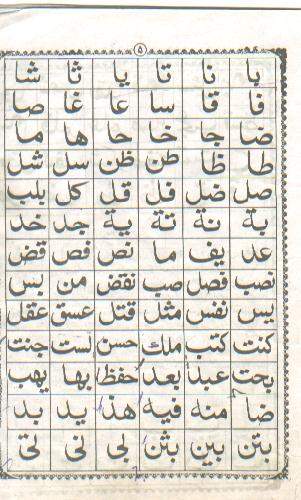 ۵
با نا تا یا ثا شا
فا قا سا عا غا صا
ضا جا خا حا ها ما
طا ظا طن ظن سل شل
صل ضل فل قل کل بلب
بة نة تة ية جد خد
عد یف ما نص فص قض
نصب فصل صب نقض من یس
یس نفس مثل قتل عسق عقل
کنت کتب ملك حسن لست جنت
بحت عبد بعد حفظ بها یهب
ضا منه فیه هذ ید بد
بتن بین بثن بی نی تی